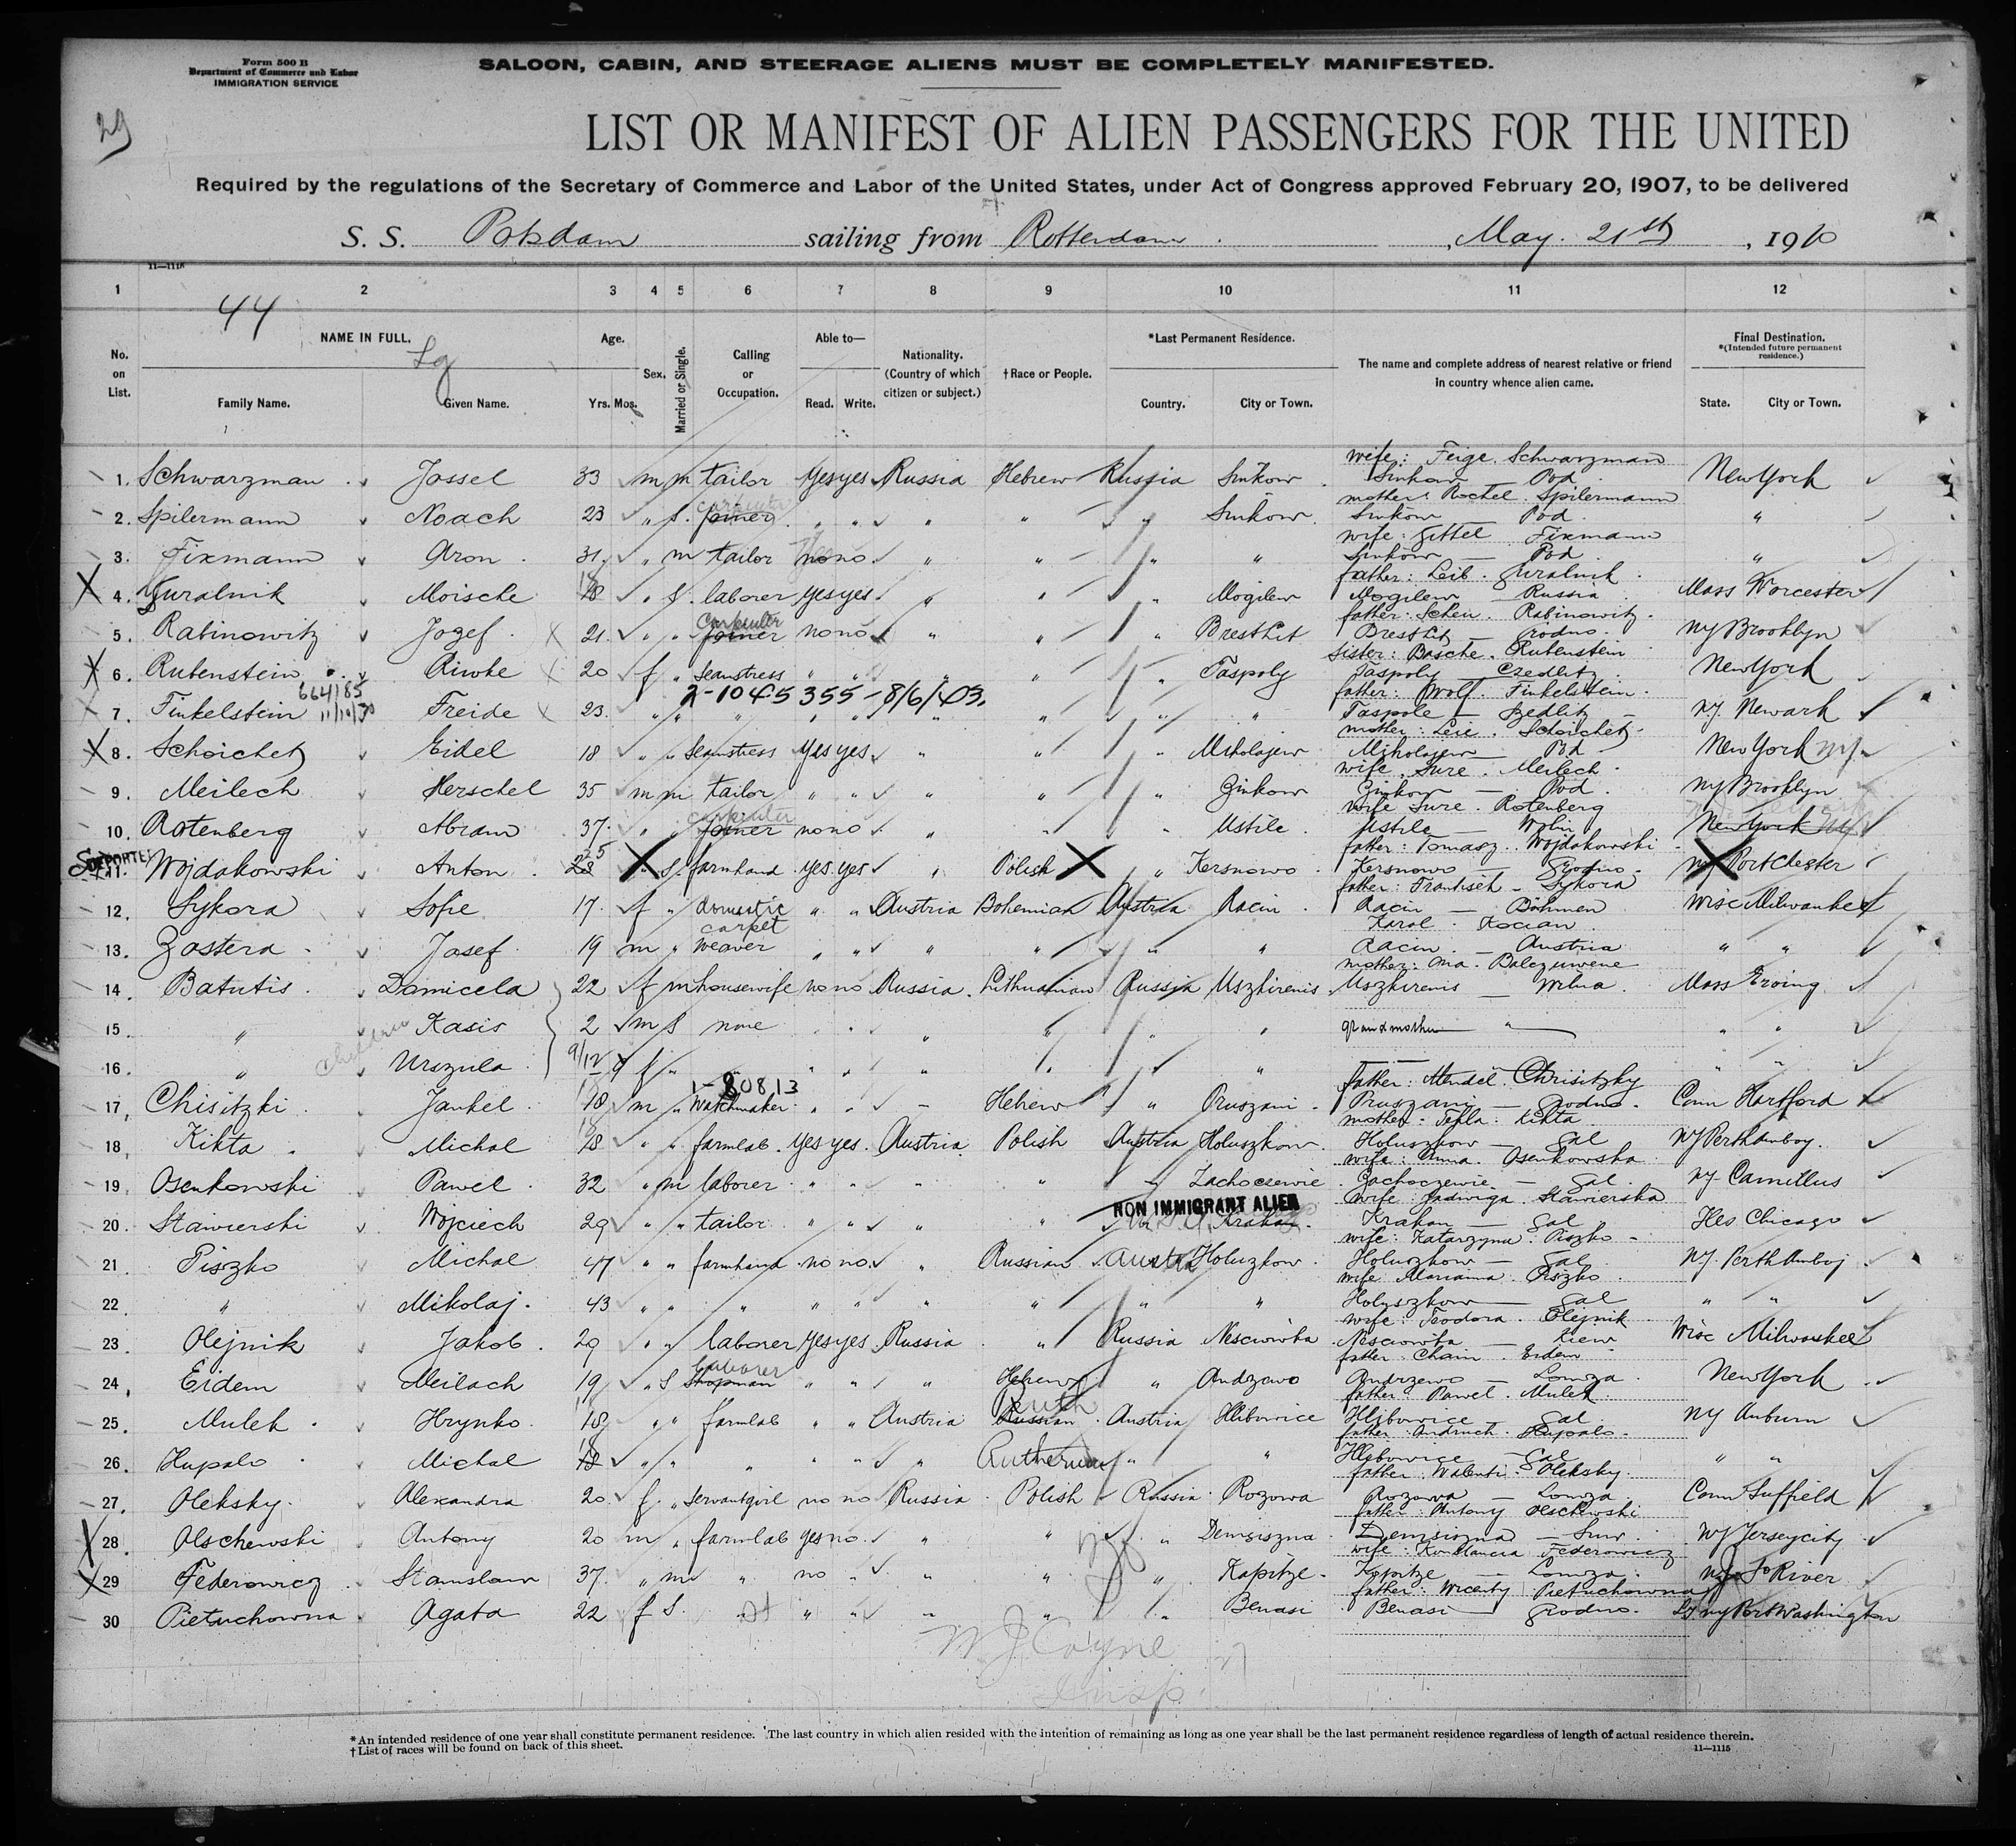 Form 500 B
Department of Commerce and Labor
IMMIGRATION SERVICE
SALOON, CABIN, AND STEERAGE ALIENS MUST BE COMPLETELY MANIFESTED.
29
LIST OR MANIFEST OF ALIEN PASSENGERS FOR THE UNITED
Required by the regulations of the Secretary of Commerce and Labor of the United States, under Act of Congress approved February 20, 1907, to be delivered
S. S. Potsdam sailing from Rotterdam, May 21st, 1910
11—1115
1 2 3 4 5 6 7 8 9 10 11 12
44
No. on List. NAME IN FULL. Family Name. Given Name. Age. Yrs. Mos. Sex. Married or Single. Calling or Occupation. Able to— Read. Write. Nationality. (Country of which citizen or subject.) †Race or People. *Last Permanent Residence. Country. City or Town. The name and complete address of nearest relative or friend in country whence alien came. Final Destination. *(Intended future permanent residence.) State. City or Town.
1. Schwarzman Jossel 33 m m tailor yes yes Russia Hebrew Russia Sinkow wife: Feige Schwarzman Sinkow — Pod. New York
2. Spilermann Noach 23 " S. joiner carpenter " " " " " Sinkow mother: Rochel Spilermann Sinkow Pod. "
3. Fixmann Aron 31 " m tailor no no " " " " wife: Gittel Fixmann Sinkow — Pod. "
4. Guralnik Moische 18 " S. laborer yes yes " " " Mogilew father: Leib Guralnik Mogilew — Russia Mass Worcester
5. Rabinowitz Jozef 21 " " joiner carpenter no no " " " Brest Lit father: Schein Rabinowitz Brest Lit — Grodno NY Brooklyn
6. Rubenstein Riwke 20 f " seamstress " " " " " Taspoly sister: Basche Rubenstein Taspoly New York
664185 11/10/30 2-1045355-8/6/43.
7. Finkelstein Freide 23 " " " " " " " " " father: Wolf Finkelstein Taspole — Szedlitz N.J. Newark
8. Schoichet Eidel 18 " " seamstress yes yes " " " Mikolajew mother: Leie Schoichet Mikolajew — Pod New York
9. Meilech Herschel 35 m m tailor " " " " " Zinkow wife Sure Meilech Zinkow — Pod. NY Brooklyn
10. Rotenberg Abram 37 " " joiner carpenter no no " " " Ustile wife Sure Rotenberg Ustile — Wolin New York
DEPORTED
11. Wojdakowski Anton 28 25 " S. farmhand yes yes " Polish " Kersnowo father: Tomasz Wojdakowski Kersnowo — Grodno NY Portchester
12. Sykora Sofie 17 f " domestic " " Austria Bohemian Austria Racin father: Frantisek Sykora Racin — Böhmen Wisc Milwaukee
13. Zastera Josef 19 m " carpet weaver " " " " " " Karol Kocian Racin — Austria " "
14. Batutis Domicela 22 f m housewife no no Russia Lithuanian Russia Uszkirenis mother: Ma. Balczuwene Uszkirenis — Wilna Mass Erving
15. " children Kasis 2 m S none " " " " " " grandmother " " "
16. " Urszula 9/12 f " " " " " " " " " "
1-80813
17. Chisitzki Jankel 18 m " Watchmaker " " — Hebrew " Pruszani father: Mendel Chrisitzky Pruszani — Grodno Conn Hartford
18. Kikta Michal 18 " " farmlab. yes yes Austria Polish Austria Holuszkow mother: Tekla Kikta Holuszkow — Gal NJ Perth Amboy
19. Osenkowski Pawel 32 " m laborer " " " " " Zachoczewie wife: Anna Osenkowska Zachoczewie — Gal. NY Camillus
NON IMMIGRANT ALIEN
20. Stawierski Wojciech 29 " " tailor " " " " Krakau wife: Jadwiga Stawierska Krakau — Gal Iles Chicago
21. Piszko Michal 47 " " farmhand no no " Russian Austria Holuzkow wife: Katarzyna Piszko Holuszkow — Gal. N.J. Perth Amboy
22. " Mikolaj 43 " " " " " " " " " wife: Marianna Piszko Holuszkow — Gal " "
23. Olejnik Jakob 29 " " laborer yes yes Russia " Russia Nesciowka wife: Teodora Olejnik Nesciowka — Kiew Wisc Milwaukee
24. Erdem Meilach 19 " S shopman laborer " " " Hebrew " Andzewo father: Chaim Erdem Andrzewo — Lomza New York
25. Mulek Hrynko 18 " " farmlab " " Austria Russian Ruth Austria Hlibowice father: Pawel Mulek Hlibowice — Gal NY Auburn
26. Hupalo Michal 18 " " " " " " Ruthenian " " father: Andruch Hupalo Hlibowice — Gal " "
27. Oleksky Alexandra 20 f " servantgirl no no Russia Polish Russia Rozowa father: Walenti Oleksky Rozowa — Lomza Conn Suffield
28. Olschewski Antony 20 m " farmlab yes no " " " Demsiszna father: Antony Olschewski Demsiszna — Suw. NJ Jersey city
29. Federowicz Stanislaw 37 " m " no " " " " Kapitze wife: Konstancia Federowicz Kopitze — Lomza NJ So River
30 Pietuchowna Agata 22 f S. " " " " " " Benasi father: Wicenty Pietuchowna Benasi — Grodno L.I. NY Port Washington
W J Coyne
Insp.
*An intended residence of one year shall constitute permanent residence. The last country in which alien resided with the intention of remaining as long as one year shall be the last permanent residence regardless of length of actual residence therein.
†List of races will be found on back of this sheet.
11—1115